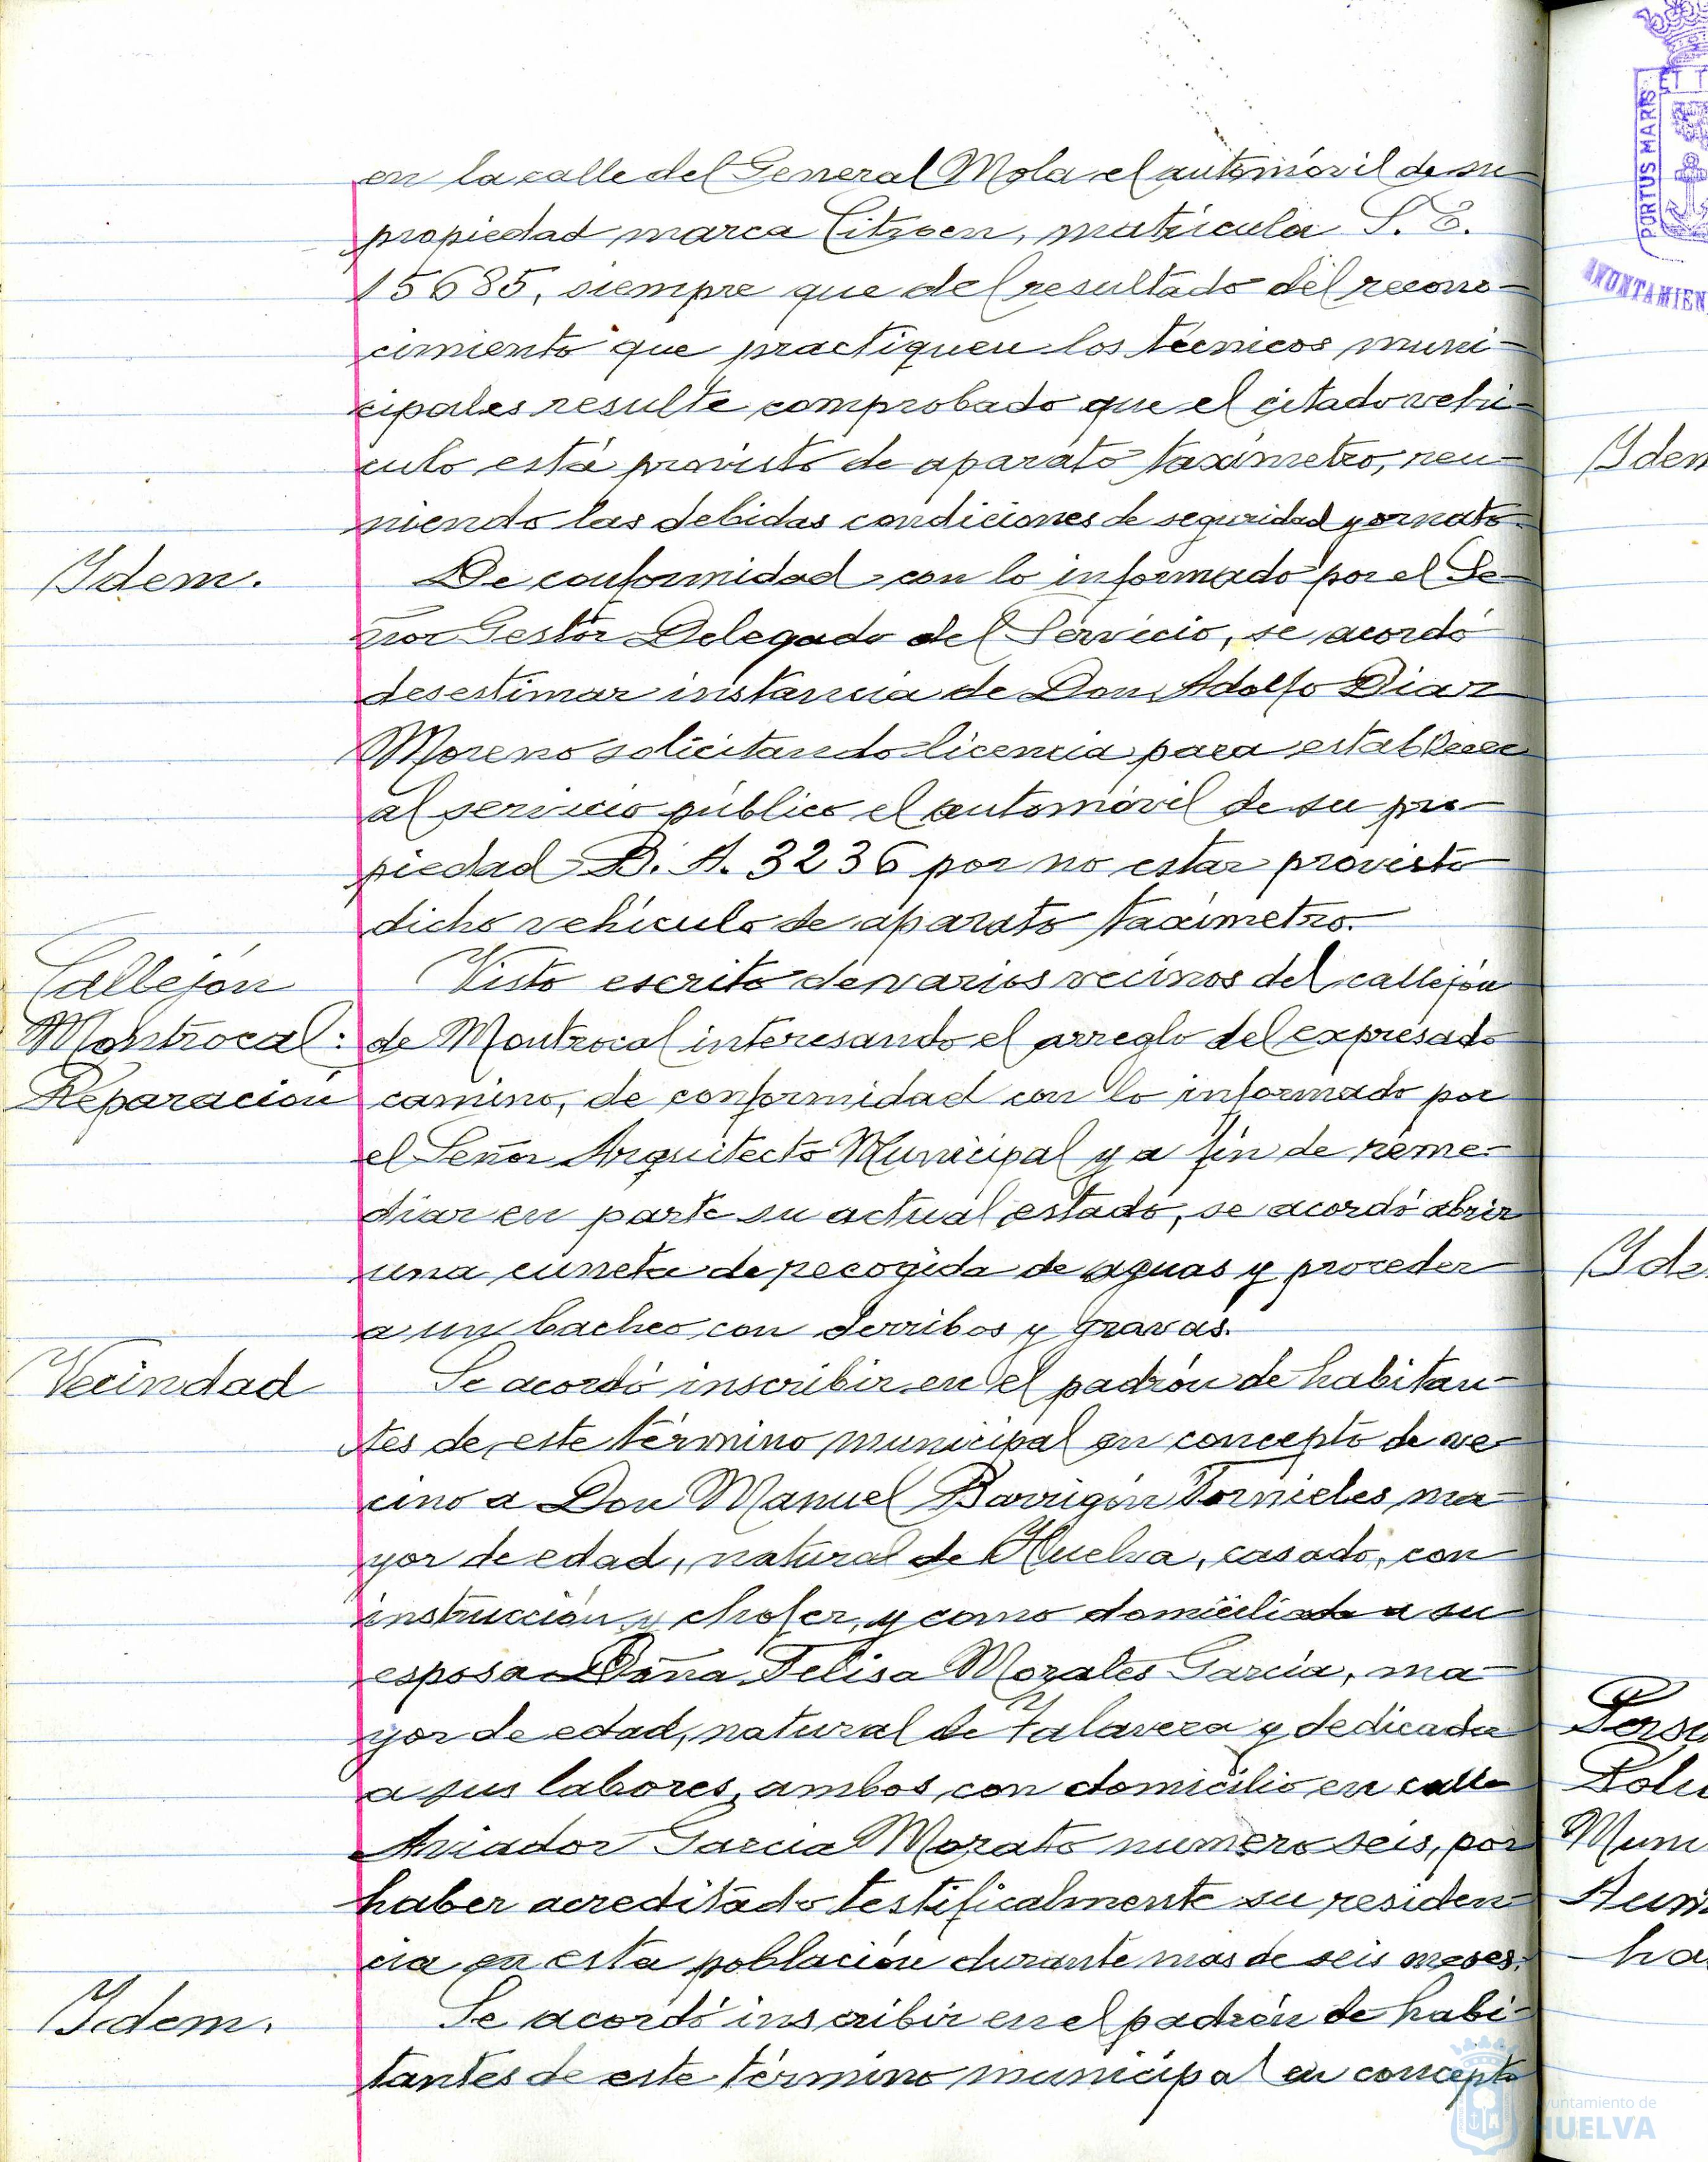 en la calle del General Mola el automóvil de su
propiedad marca Citroen, matrícula S. E.
15685, siempre que del resultado del recono-
cimiento que practiquen los técnicos muni-
cipales resulte comprobado que el citado vehi-
culo está provisto de aparato taxímetro, reu-
niendo las debidas condiciones de seguridad y ornato.
Idem.
De conformidad con lo informado por el Se-
ñor Gestor Delegado del Servicio, se acordó
desestimar instancia de Don Adolfo Diaz
Moreno solicitando licencia para establecer
al servicio público el automóvil de su pro-
piedad B. A. 3236 por no estar provisto
dicho vehículo de aparato taxímetro.
Callejón
Montrocal:
Reparación
Visto escrito de varios vecinos del callejón
de Montrocal interesando el arreglo del expresado
camino, de conformidad con lo informado por
el Señor Arquitecto Municipal y a fin de reme-
diar en parte su actual estado, se acordó abrir
una cuneta de recogida de aguas y proceder
a un bacheo con derribos y gravas.
Vecindad
Se acordó inscribir en el padrón de habitan-
tes de este término municipal en concepto de ve-
cino a Don Manuel Barrigón Tornieles, ma-
yor de edad, natural de Huelva, casado, con
instrucción y chofer, y como domiciliada a su
esposa Doña Felisa Morales García, ma-
yor de edad, natural de Talavera y dedicada
a sus labores, ambos con domicilio en calle
Aviador Garcia Morato numero seis, por
haber acreditado testificalmente su residen-
cia en esta población durante mas de seis meses.
Idem.
Se acordó inscribir en el padrón de habi-
tantes de este término municipal en concepto
PORTUS MARIS
ET T
AYUNTAMIEN
Idem
Ide
Perso
Muni
ha
Ayuntamiento de
HUELVA